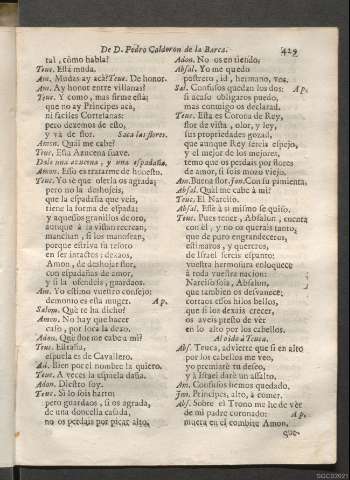 De D. Pedro Calderon de la Barca. 429
tal, còmo habla?
Teuc. Està muda.
Am. Mudas ay acà? Teuc. De honor.
Am. Ay honor entre villanas?
Teuc. Y como, mas firme està;
que no ay Principes acà,
ni faciles Cortesanas:
pero dexemos de esto,
y và de flor. Saca las flores.
Amon. Quàl me cabe?
Teuc. Esta Azucena suave.
Dale una azucena, y una espadaña.
Amon. Esso es tratarme de honesto.
Teuc. Yo sè que olerla os agrada;
pero no la deshojeis,
que la espadaña que veis,
tiene la forma de espada:
y aquessos granillos de oro,
aunque à la vista recrean,
manchan, si los manosean,
porque estriva su tesoro
en ser intactos: dexaos,
Amon, de deshojar flor,
con espadañas de amor,
y si la ofendeis, guardaos.
Am. Yo estimo vuestro consejo:
demonio es esta muger. Ap.
Salom. Què te ha dicho?
Amon. No hay que hacer
caso, por loca la dexo.
Adon. Què flor me cabe a mi?
Teuc.
espuela es de Cavallero.
Ad. Bien por el nombre la quiero.
Teuc. A veces la espuela daña.
Adon. Diestro soy.
Teuc. Si lo sois harto;
pero guardaos, si os agrada,
de una doncella casada,
no os perdais por picar alto,
Adon. No os entiendo.
Absal. Yo me quedo
postrero, id, hermano, vos.
Sal. Confusos quedan los dos: Ap.
si acaso obligaros puedo,
mas conmigo os declarad.
Teuc. Esta es Corona de Rey,
flor de vista, olor, y ley,
sus propiedades gozad,
que aunque Rey sereis espejo,
y el mejor de los mejores,
temo que os perdais por flores
de amor, si sois mozo viejo.
Am. Buena flor. Jon. Con su pimienta.
Absal. Quàl me cabe à mi?
Teuc. El Narciso.
Absal. Esse à sì mismo se quiso.
Teuc. Pues tened, Absalon, cuenta
con èl, y no os querais tanto;
que de puro engrandeceros,
estimaros, y quereros,
de Israel sereis espanto:
vuestra hermosura enloquece
à toda vuestra nacion:
Narciso sois, Absalon,
que tambien os desvanece;
cortaos essos hilos bellos,
que si los dexais crecer,
os aveis presto de vèr
en lo alto por los cabellos.
Al oido à Teuca.
Abs. Teuca, advierte que si en alto
por los cabellos me veo,
yo premiarè tu deseo,
y à Israel darè un assalto.
Am. Confusos hemos quedado.
Jon. Principes, alto, à comer.
Abs. Sobre el Trono me he de vèr
de mi padre coronado: Ap.
muera en el combite Amon.
que-